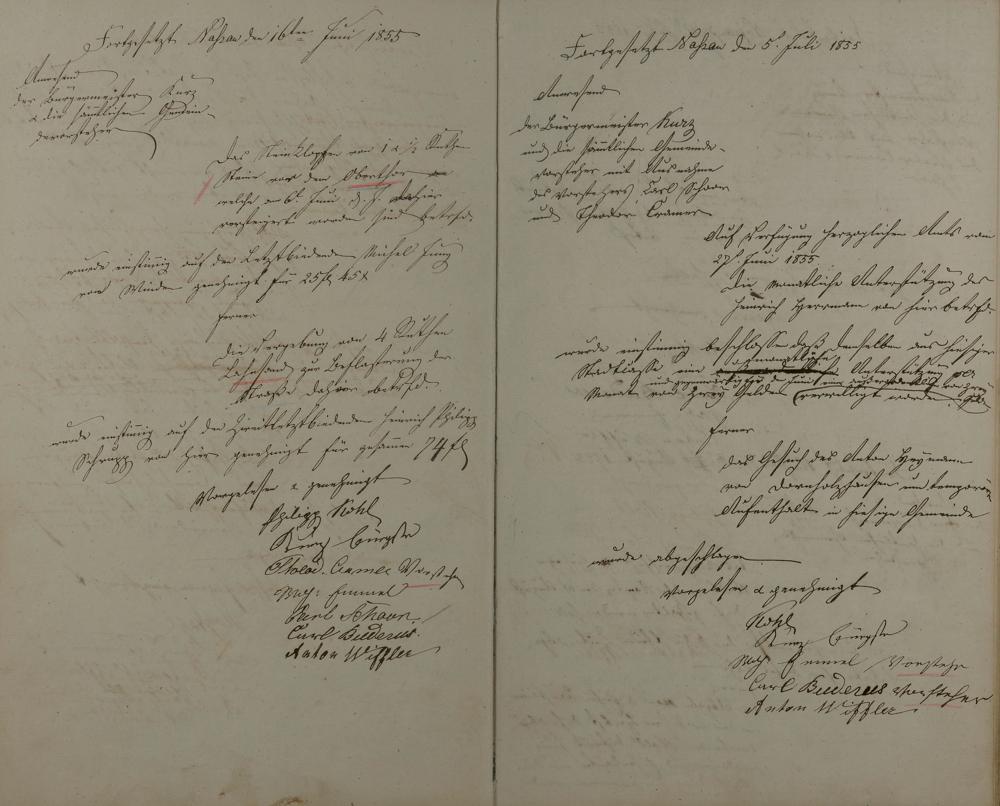 Fortgesetzt Nassau den 16ten Juni 1855
Anwesend
der Bürgermeister Kurz
& die sämmtlichen Gemein-
devorsteher
Das Steinklopfen von 1 & ½ Ruthen
Steine vor dem Oberthor
welche am 6t Juni d. J. dahier
versteigert worden sind betrfd.
wurde einstimig auf den Letztbiedenden Michel Jung
von Winden genehmigt für 25 fl 45 x
ferner
die Vergebung von 4 Ruthen
Lahnsand zur Beflasterung der
Straße dahier betrfd.
wurde einstimig auf den Zweitletztbiedenden Heinrich Philipp
Schrupp von hier genehmigt für zusammen 74 fl
Vorgelesen & genehmigt
Philipp Kohl
Kurz Bürgstr
Theod. Cramer Vorsteher
Emmel
Carl Schaar.
Carl Buderus.
Anton Wiffler
Fortgesetzt Nassau den 5t Juli 1855
Anwesend
der Bürgermeister Kurz
und die sämmtlichen Gemeinde-
vorsteher mit Ausnahme
des Vorstehers Carl Schaar
und Theodor Cramer
Auf Verfügung Herzoglichen Amts vom
27t Juni 1855
Die monatliche Unterstützung des
Heinrich Herrmann von hier betrfd.
wurde einstimig beschlossen daß demselben aus hiesiger
Stadtkasse eine monatliche Unterstützung per
Monat von zwey Gulden verwilligt worden
ferner
das Gesuch des Anton Heymann
von Dornholzhausen um temporären
Aufenthalt in hiesige Gemeinde
wurde abgeschlagen
Vorgelesen & genehmigt
Kohl
Kurz Bürgstr
Emmel Vorsteher
Carl Buderus Vorsteher
Anton Wiffler